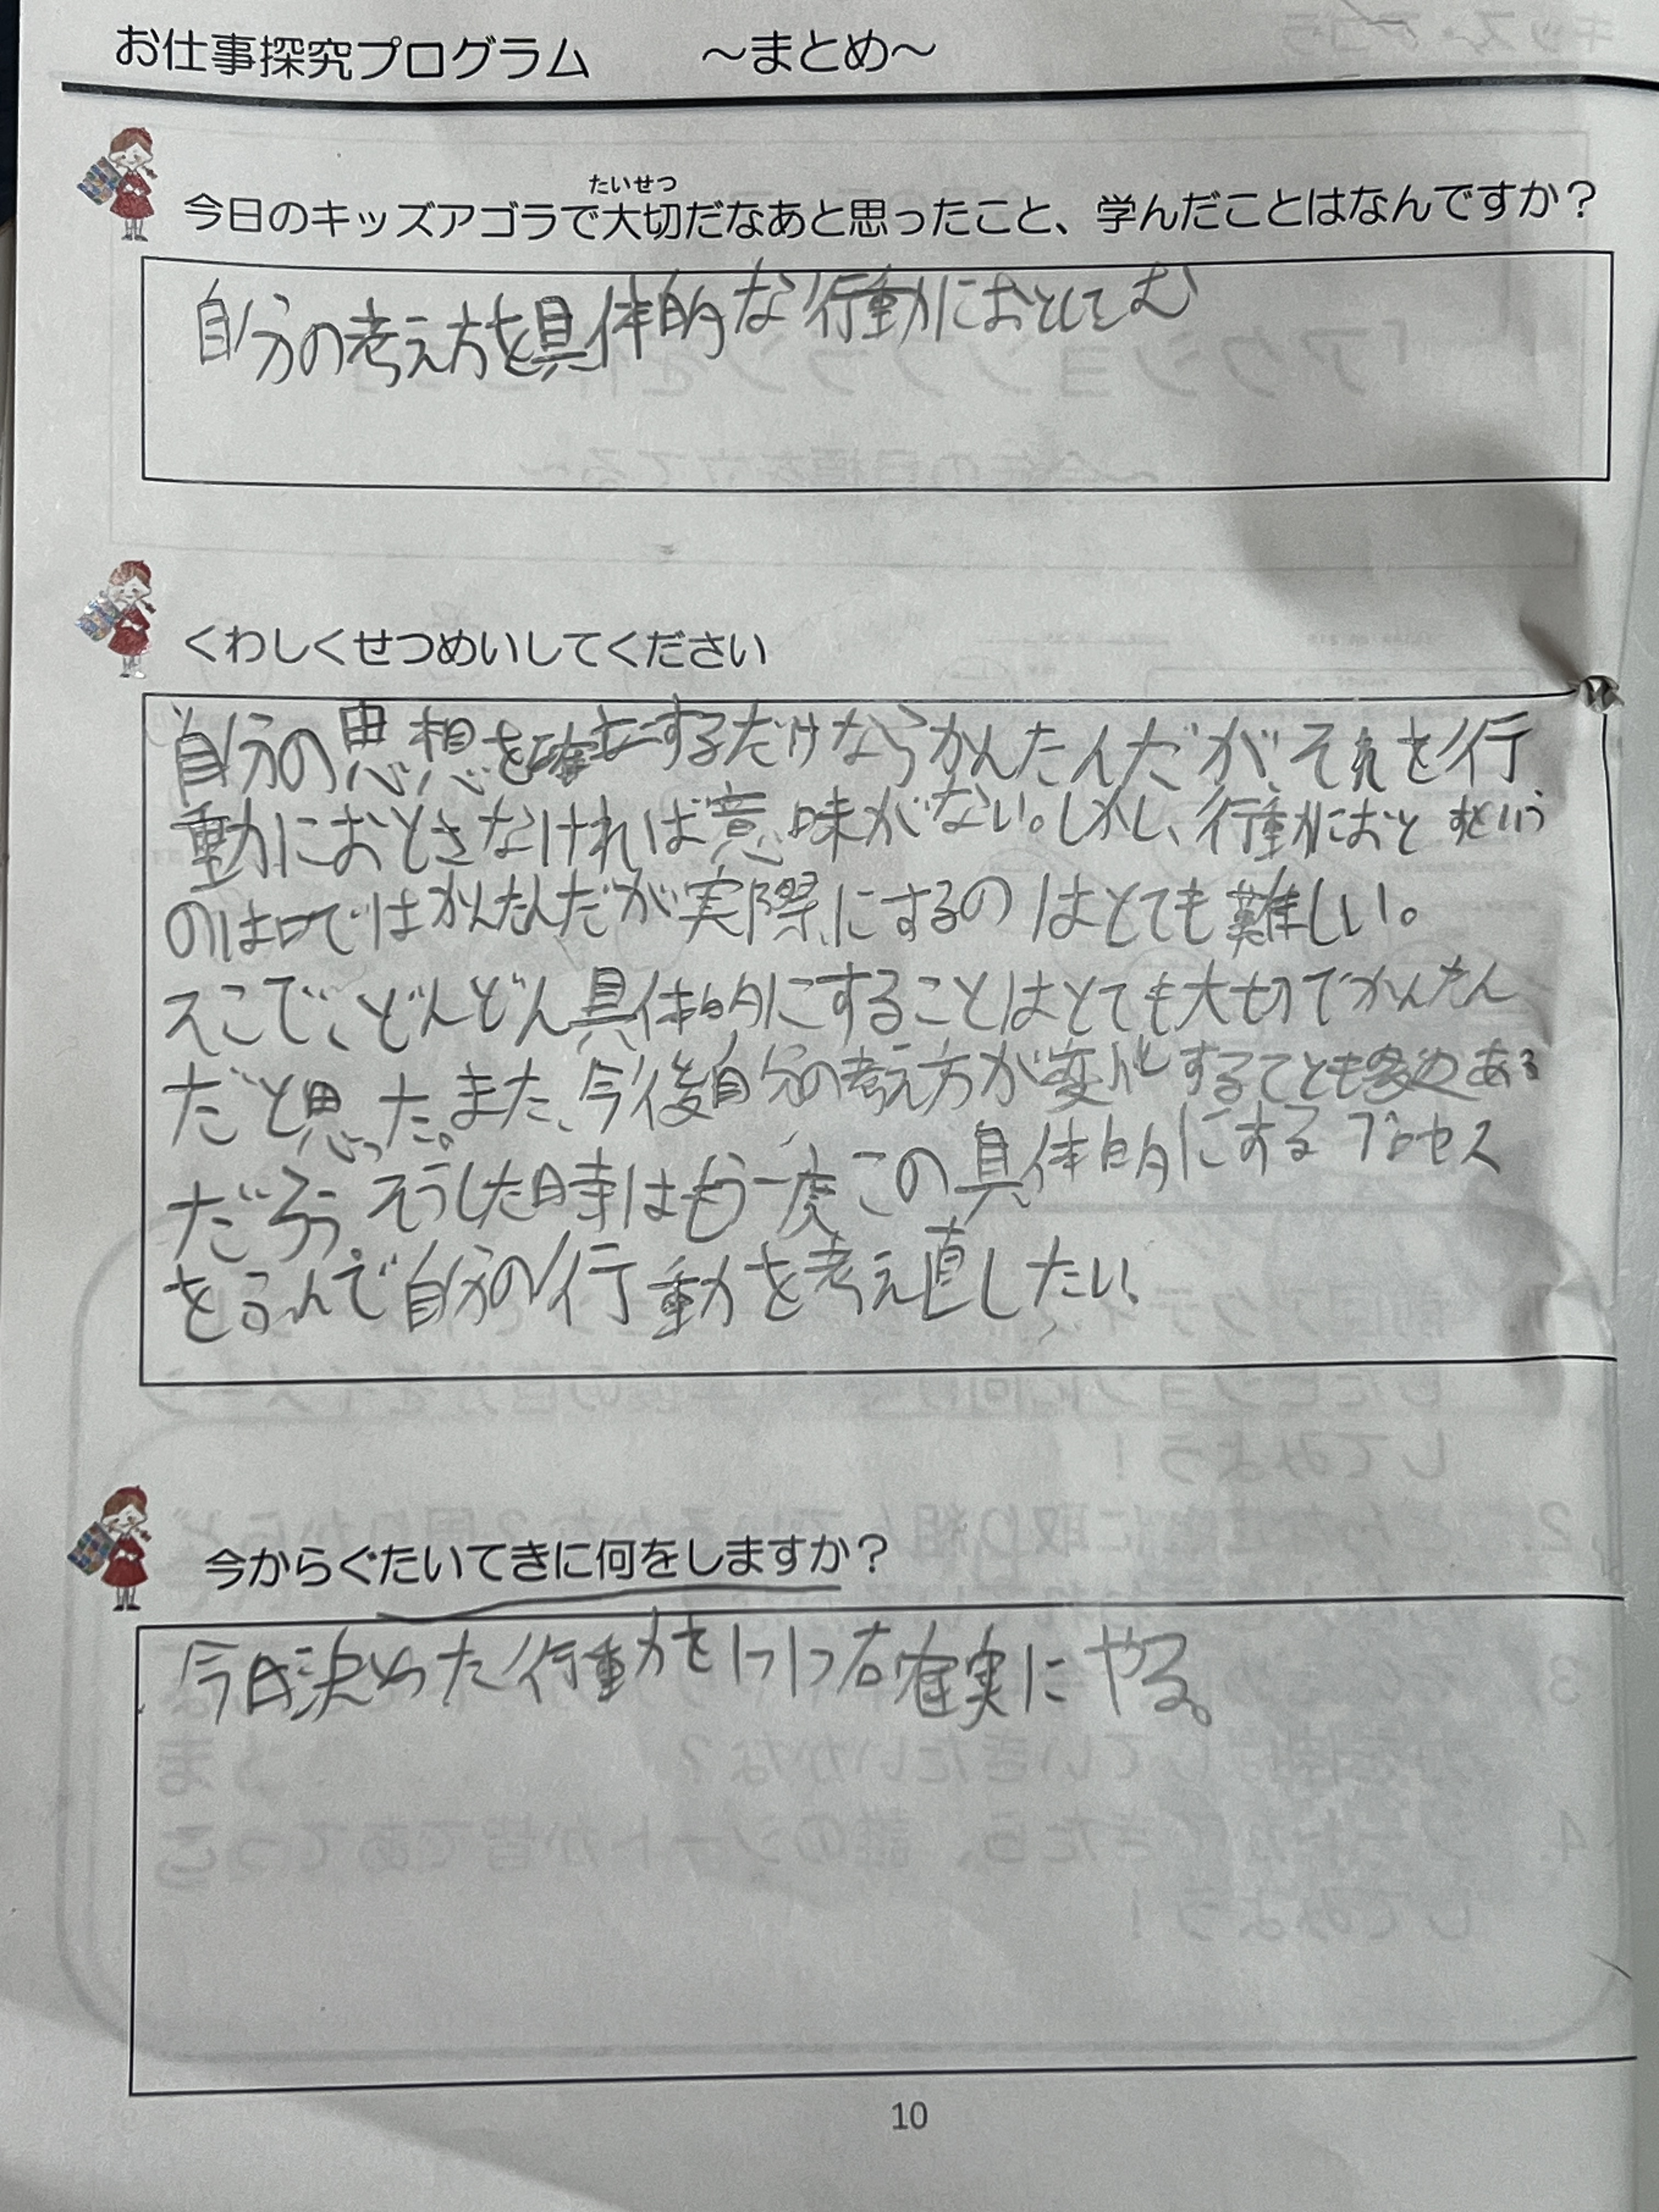 お仕事探究プログラム　　～まとめ～
たいせつ
今日のキッズアゴラで大切だなあと思ったこと、学んだことはなんですか？
自分の考え方を具体的な行動におとしこむ
くわしくせつめいしてください
自分の思想を確立するだけならかんたんだが、それを行
動におとさなければ意味がない。しかし、行動におとすという
のは口ではかんたんだが実際にするのはとても難しい。
そこで、どんどん具体的にすることはとても大切でかんたん
だと思った。また、今後自分の考え方が変化することも多々ある
だろう、そうした時はもう一度この具体的にするプロセス
をふんで自分の行動を考え直したい、
今からぐたいてきに何をしますか？
今日決めた行動を1つ1つ確実にやる。
10